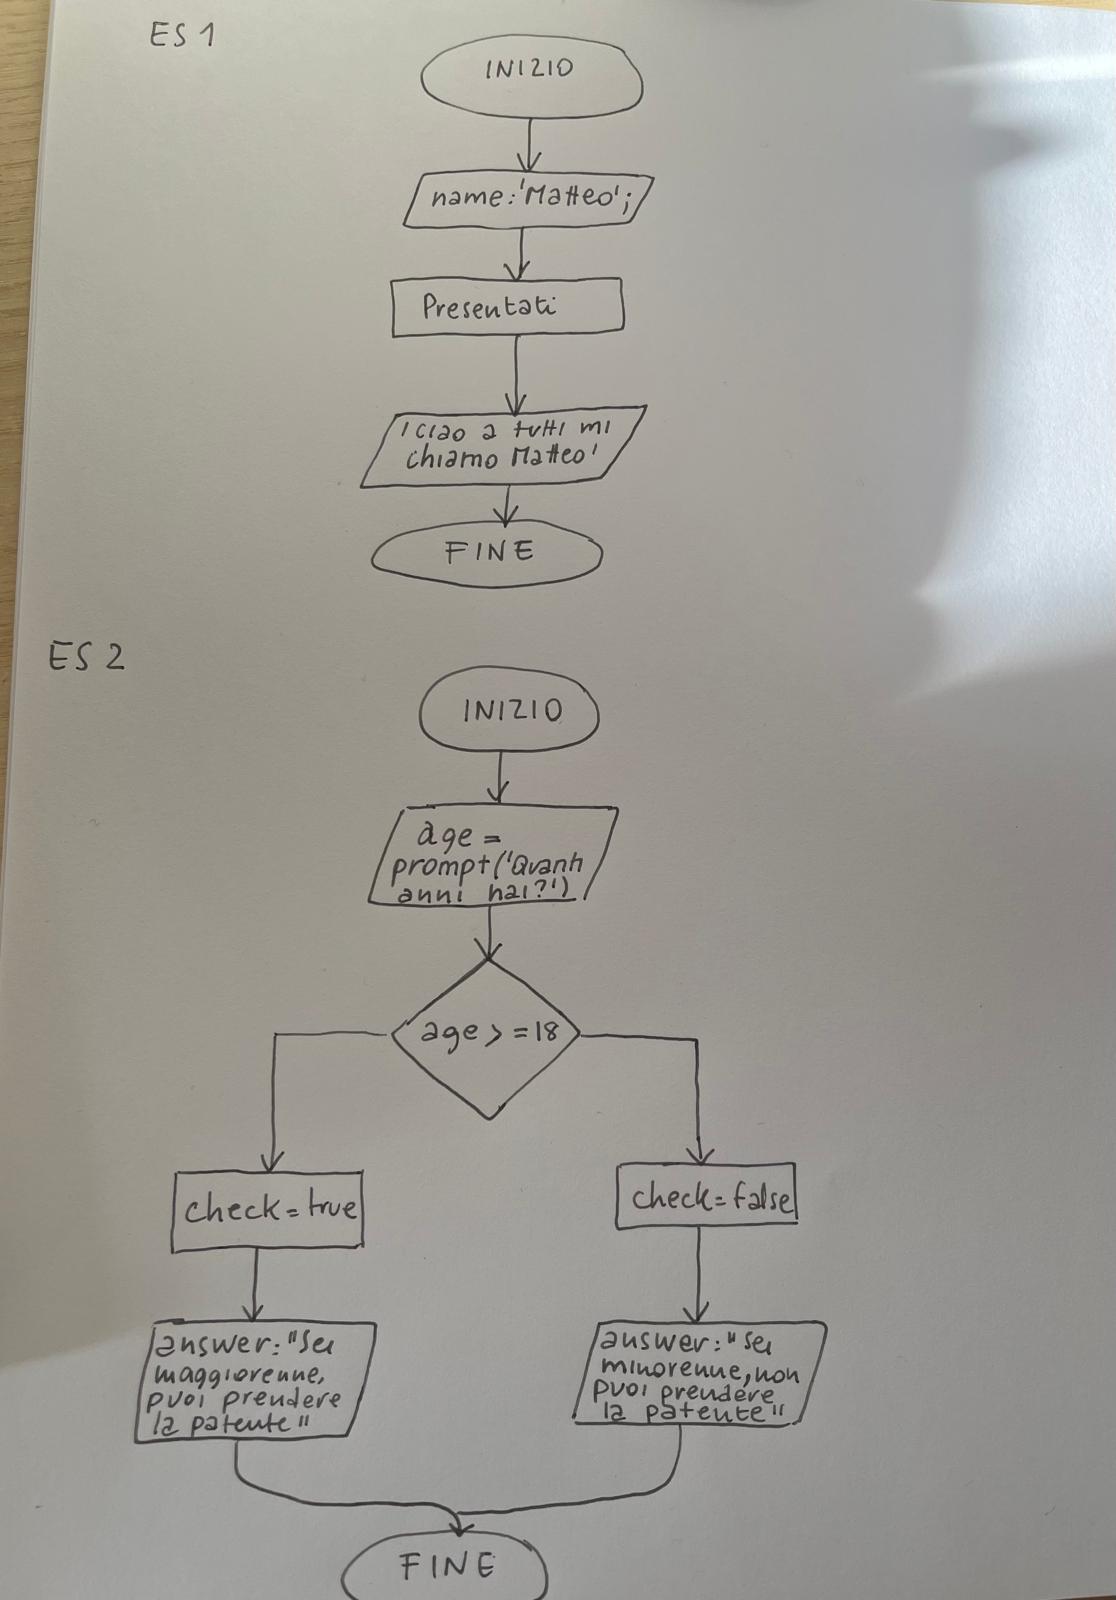 ES 1
INIZIO
name:'Matteo';
Presentati
'ciao a tutti mi
chiamo Matteo'
FINE
ES 2
INIZIO
age =
prompt('Quanti
anni hai?')
age >=18
check=true
check=false
answer:"Sei
maggiorenne,
puoi prendere
la patente"
answer:"sei
minorenne, non
puoi prendere
la patente"
FINE